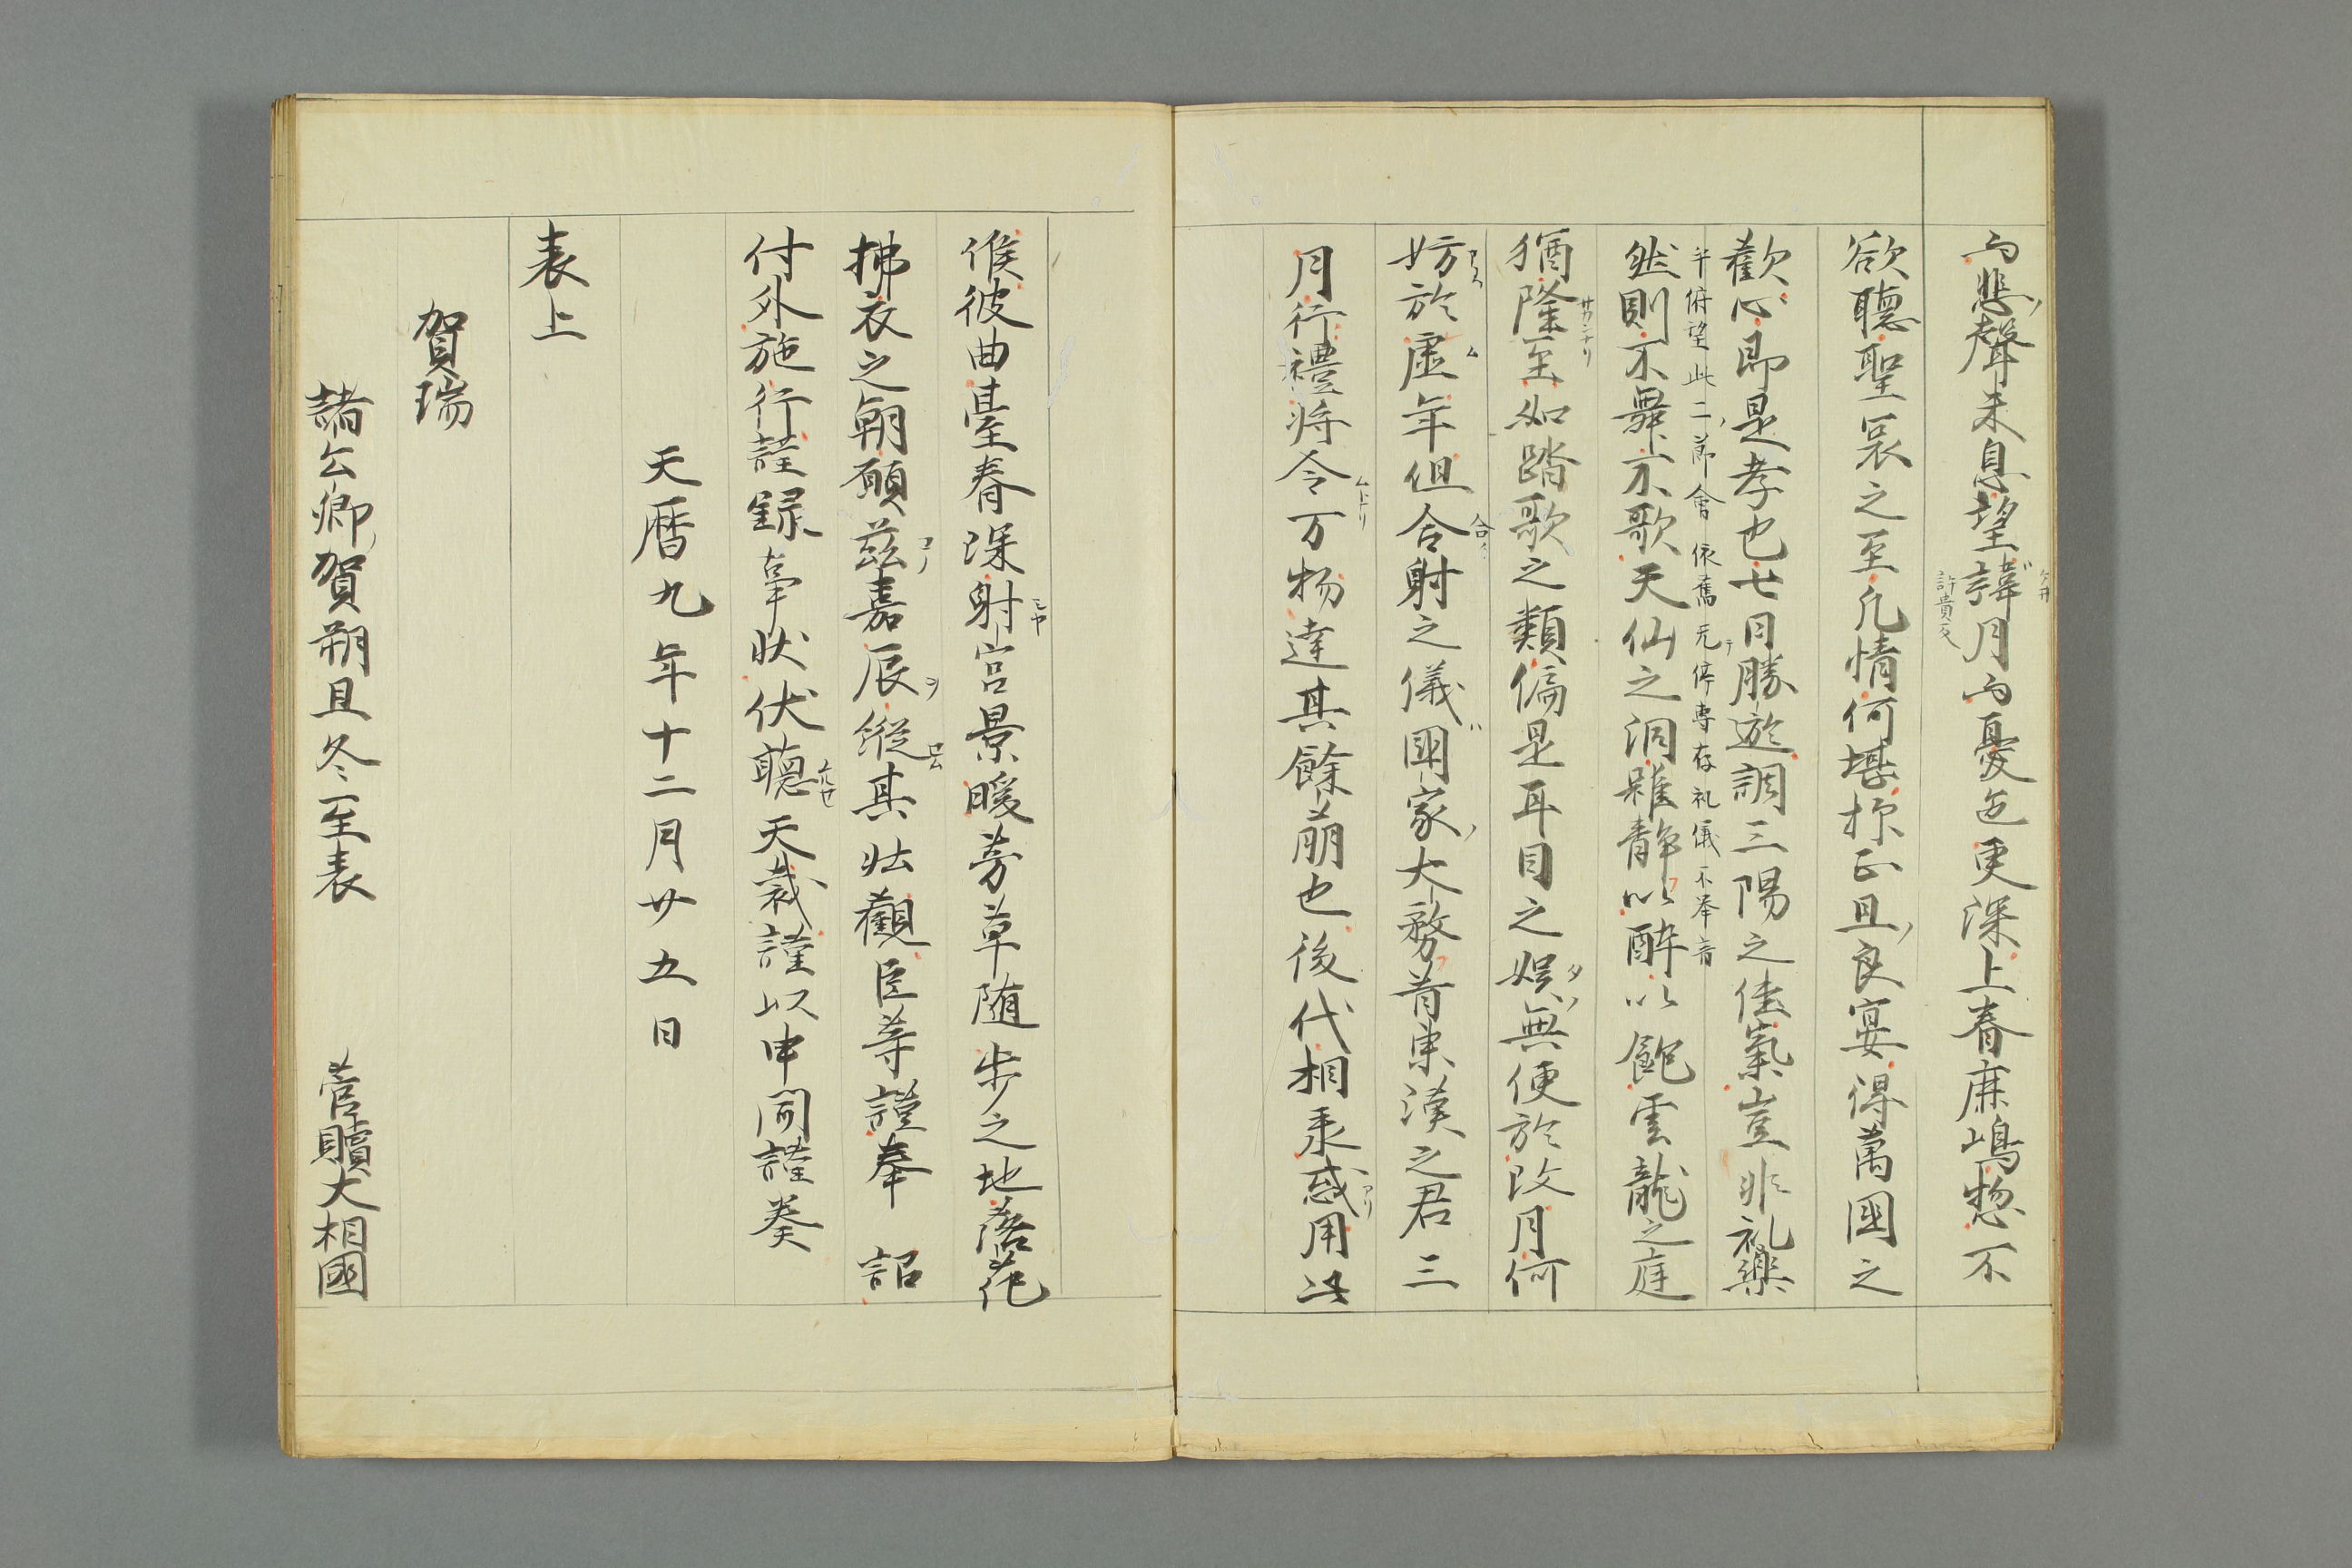 而悲聲未息望諱月而憂色更深上春麻嶋惣不
欲聴聖哀之至凡情何堪抑正旦良宴得萬國之
歡心即是孝也七日勝遊調三陽之佳氣豈非礼樂
半俯望此二節會依舊无停専存礼儀不奉音
然則不舞不歌天仙之洞雖静以酔以飽雲龍之庭
猶隆至如踏歌之類偏是耳目之娯無便於改月何
妨於虚年但合射之儀國家大務昔東漢之君三
月行禮将令万物達其餘萠也後代相承或用此
候彼曲臺春深射宮景暖芳草随歩之地落花
拂衣之朝顧茲嘉辰縦其壮觀臣等謹奉 詔
付外施行謹録事状伏聴天裁謹以申聞謹奏
天暦九年十二月廿五日
表上
賀瑞
諸公卿賀朔旦冬至表 菅贈大相國